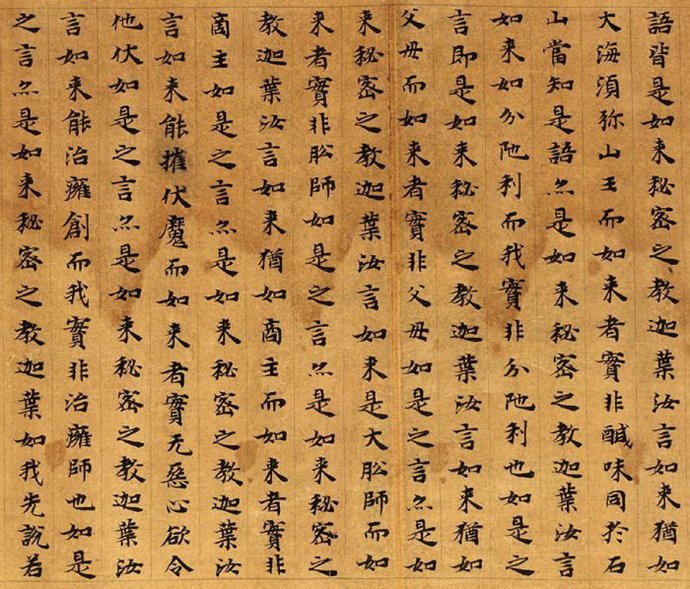 語皆是如来秘密之教迦葉汝言如来猶如
大海湏弥山王而如来者實非醎味同於石
山當知是語亦是如来秘密之教迦葉汝言
如来如分陁利而我實非分陁利也如是之
言即是如来秘密之教迦葉汝言如来猶如
父母而如来者實非父母如是之言亦是如
来秘密之教迦葉汝言如来是大舩師而如
来者實非舩師如是之言亦是如来秘密之
教迦葉汝言如来猶如商主而如来者實非
商主如是之言亦是如来秘密之教迦葉汝
言如来能摧伏魔而如来者實无惡心欲令
他伏如是之言亦是如来秘密之教迦葉汝
言如来能治癰創而我實非治癰師也如是
之言亦是如来秘密之教迦葉如我先說若